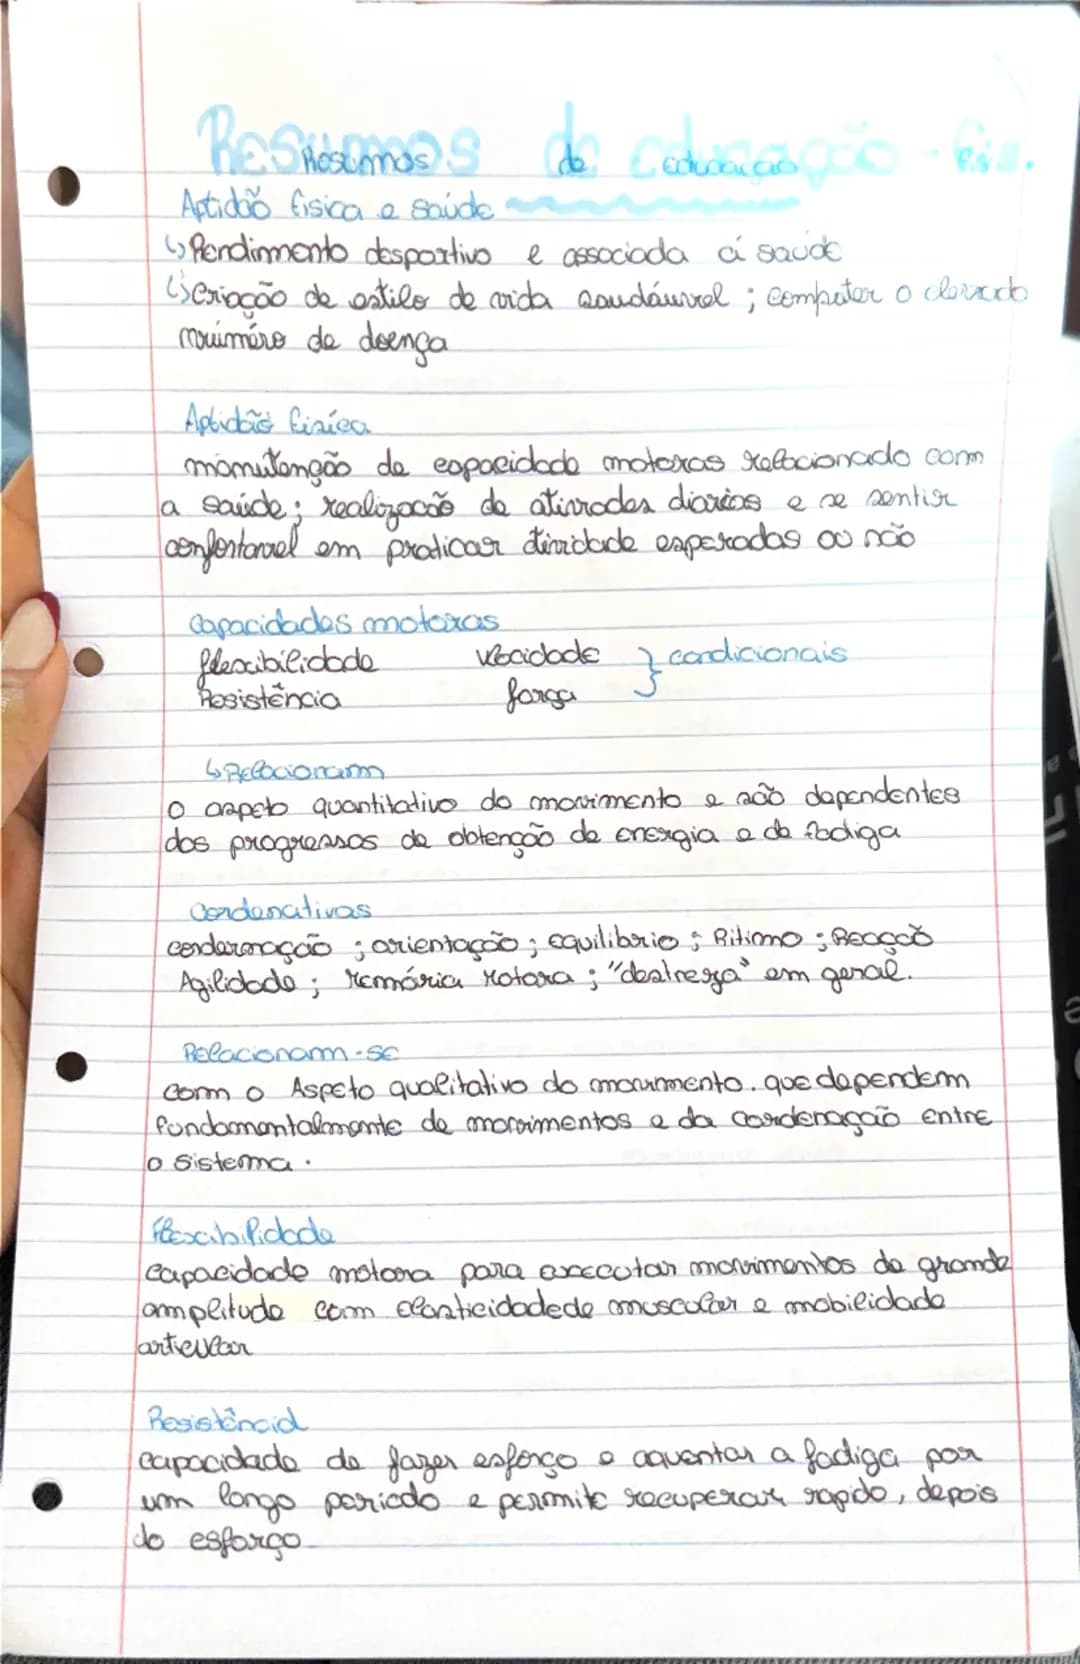 Resumos de educação - fis.
Resumos de Educação
Aptidão fisica e saúde
↳ Rendimento desportivo e associada á saúde
↳ criação de estilo de vida saudáuvel ; computer o elevado
múiméro de doença
Aptidão fisíca
manutenção de capacidade motoras relacionado com
a saúde ; realização de ativades diarias e se sentir
confortavel em praticar dividade esperadas ou não
Capacidades motoras
flexibilidade velocidade } condicionais
Resistência força
↳ Relacionam
O aspeto quantitativo do movimento e são dependentes
dos progressos de obtenção de energia e da fadiga
Cordenativas
cordernação ; orientação ; Equilibrio ; Ritimo ; Reacção
Agilidade ; memórica motora ; "destreza" em geral.
Relacionam-se
com o Aspeto qualitativo do movimento. que dependem
fundamentalmente de movimentos e da cordenação entre
o sistema.
flexibilidade
capacidade motora para executar movimentos de grande
amplitude com elasticidadede muscular e mobilidade
articular
Resistência
capacidade de fazer esforço e aguentar a fadiga por
um longo periodo e permite recuperar rapido, depois
do esforço